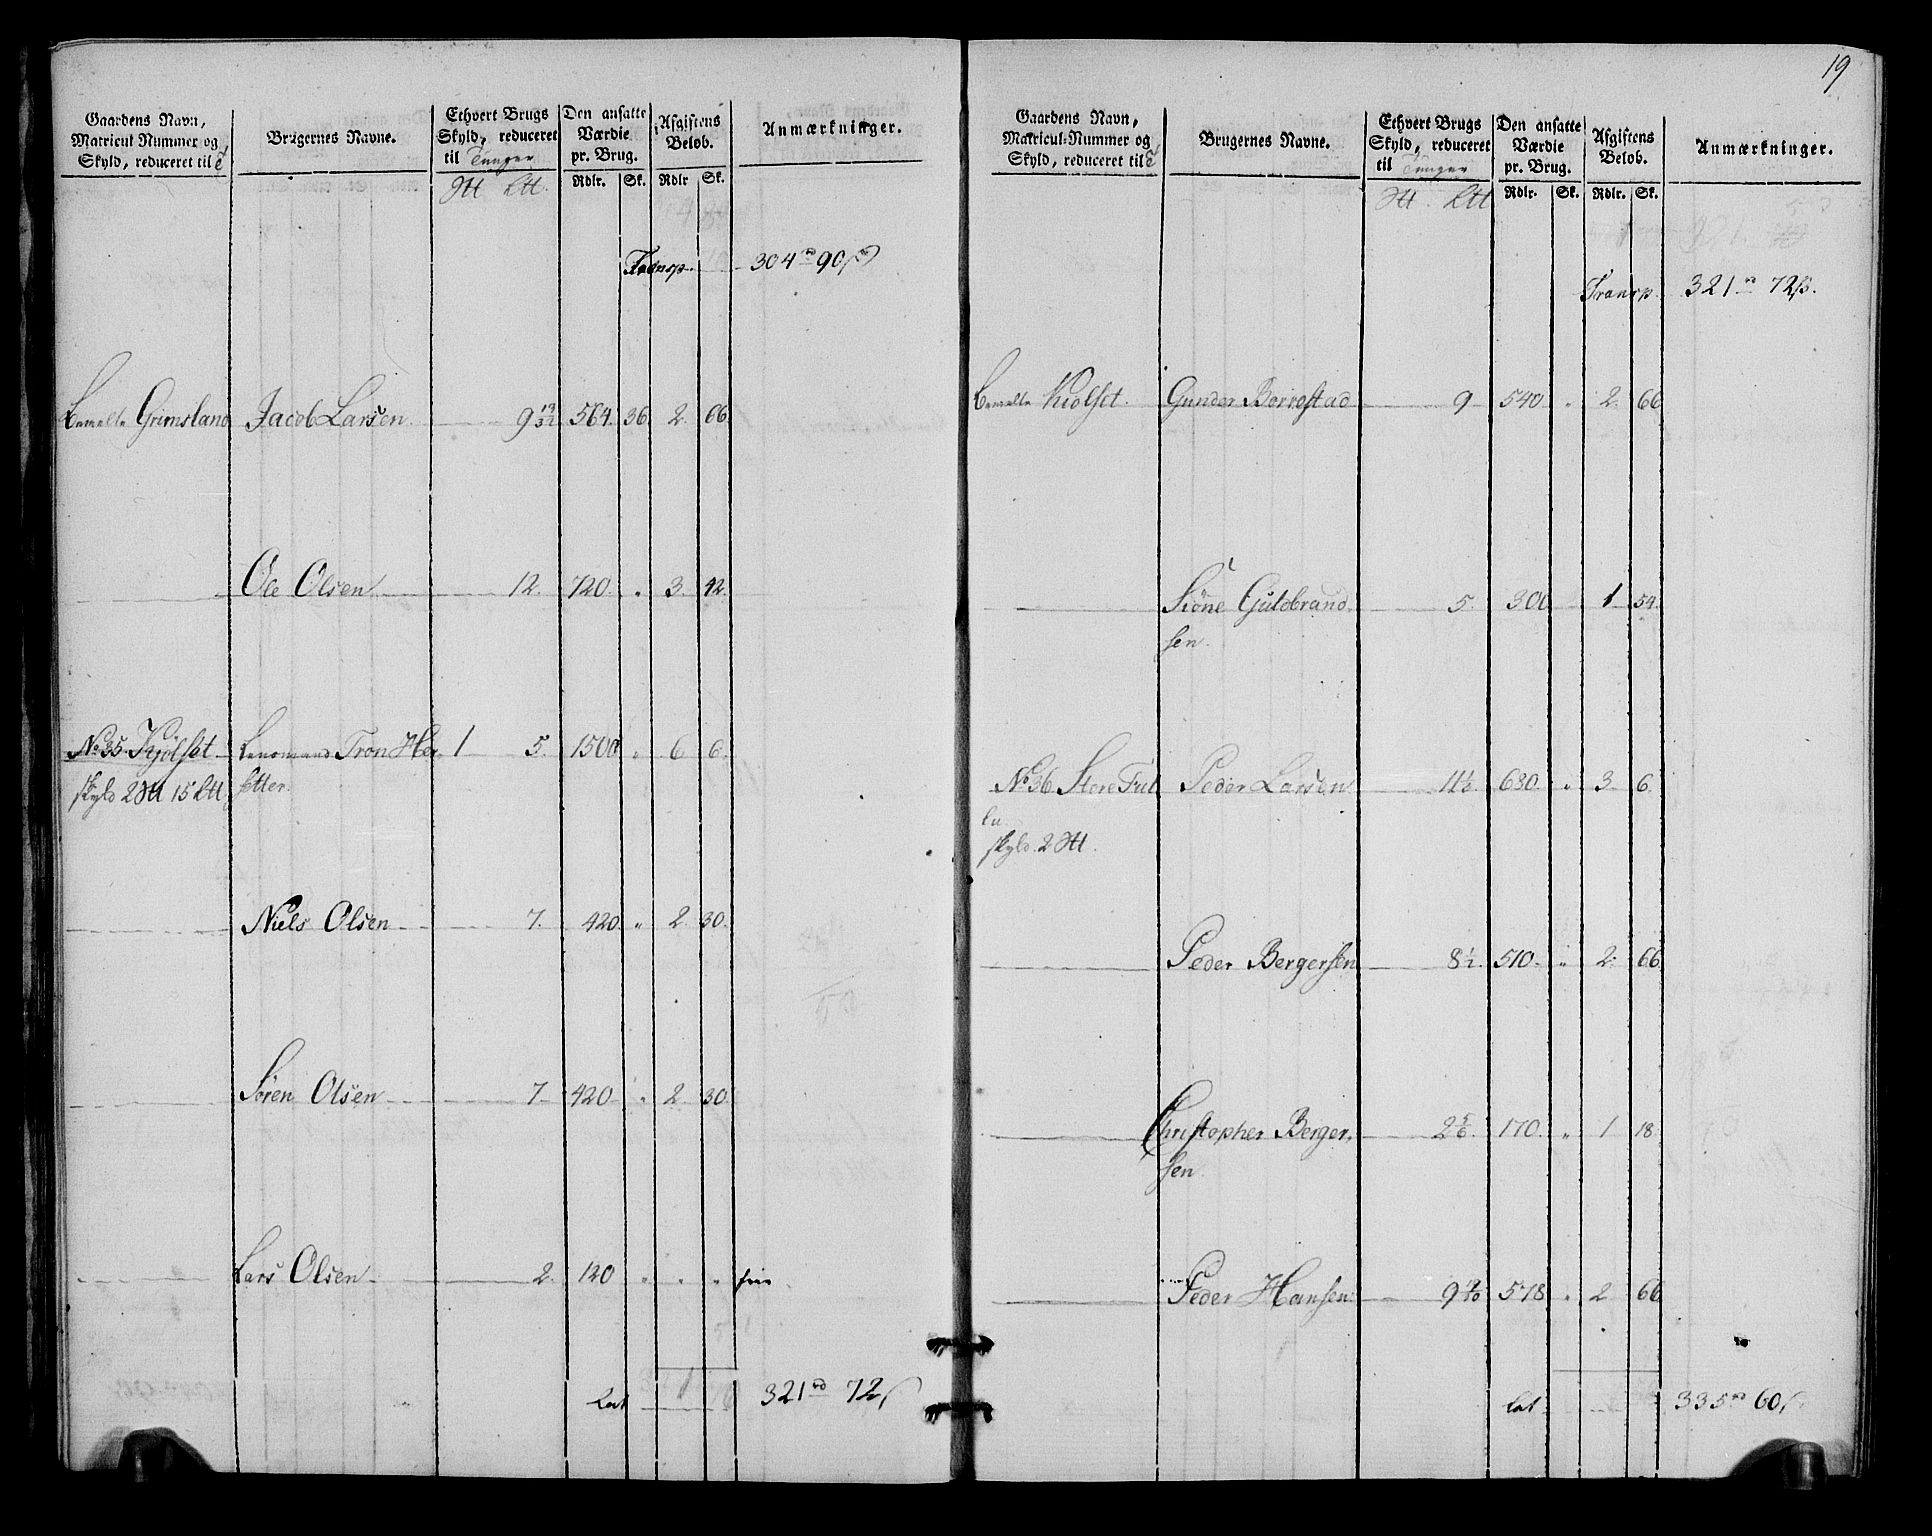 19
Gaardens Navn,
Matricul Nummer og
Skyld, reduceret til
Brugernes Navne.
Ethvert Brugs
Skyld, reduceret
til Tunger
Den ansatte
Værdie
pr. Brug.
Rdlr. Sk.
Afgiftens
Beløb.
Rdlr Sk.
Anmærkninger.
Transp. 304 rd 90 ß
Bemelte Grimsland Jacob Larsen 9 19/32 564. 36. 2. 66.
Ole Olsen 12. 720. " 3. 42.
No 35. Kjølset Lensmand Tron Her 1 5. 1500 " 6 6.
skyld 2 Htt 15 Ltt setter.
Niels Olsen 7. 420. " 2. 30.
Søren Olsen 7. 420 " 2. 30.
Lars Olsen 2. 120 " " " frie
Lat 321 rd 72 ß
Gaardens Navn,
Matricul-Nummer og
Skyld, reduceret til
Brugernes Navne.
Ethvert Brugs
Skyld, reduceret
til Tunger
Den ansatte
Værdie
pr. Brug.
Rdlr. Sk.
Afgiftens
Beløb.
Rdlr. Sk.
Anmærkninger.
Transp. 321 rd 72 ß.
Bemelte Kiølset. Gunder Borrestad 9 540 " 2. 66
Siöne Guldbrand 5. 300 1 54.
sen.
No 36. Store Peder Larsen 680. " 3 6.
skyld. 2 Htt.
Peder Bergersen 8 1/2. 510. " 2. 66.
Christopher Berger 2 5/6. 170. " 1 18.
sen.
Peder Hansen 578 " 2 66
Lat 335 rd 60 ß